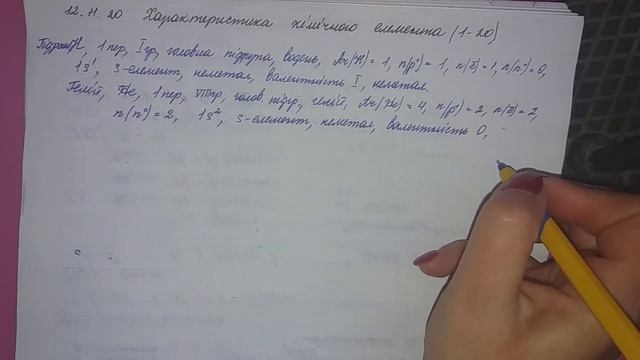 12.11.20 Характеристика хімічного елемента (1-20)
Гідроген, 1 пер, I гр, головна підгрупа, водень, Ar(H) = 1, n(p⁺) = 1, n(ē) = 1, n(n⁰) = 0,
1s¹, s-елемент, неметал, валентність I, неметал.
Гелій, He, 1 пер, VIII гр, голов. підгр, гелій, Ar(He) = 4, n(p⁺) = 2, n(ē) = 2,
n(n⁰) = 2, 1s², s-елемент, неметал, валентність 0,